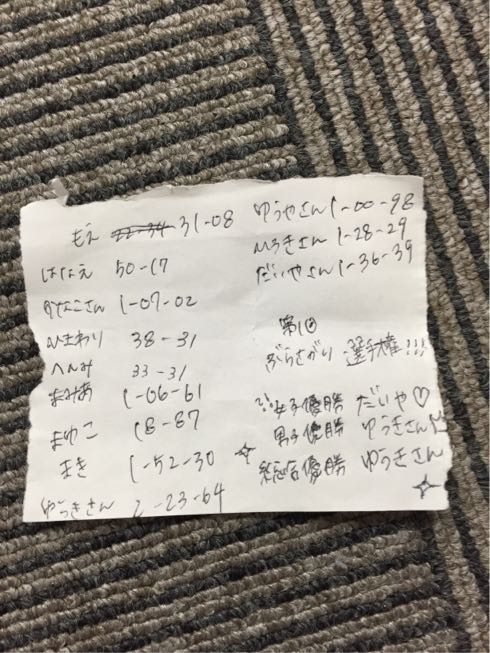 もえ 22-34 31-08
はなえ 50-17
かなこさん 1-07-02
ひまわり 38-31
へんみ 33-31
まみあ 1-06-61
まゆこ 18-87
まき 1-52-30
ゆうきさん 2-23-64
ゆうやさん 1-00-98
ひろきさん 1-28-29
だいやさん 1-36-39
第1回
ぶらさがり 選手権!!!
女子優勝 だいや♡
男子優勝 ゆうきさん
総合優勝 ゆうきさん